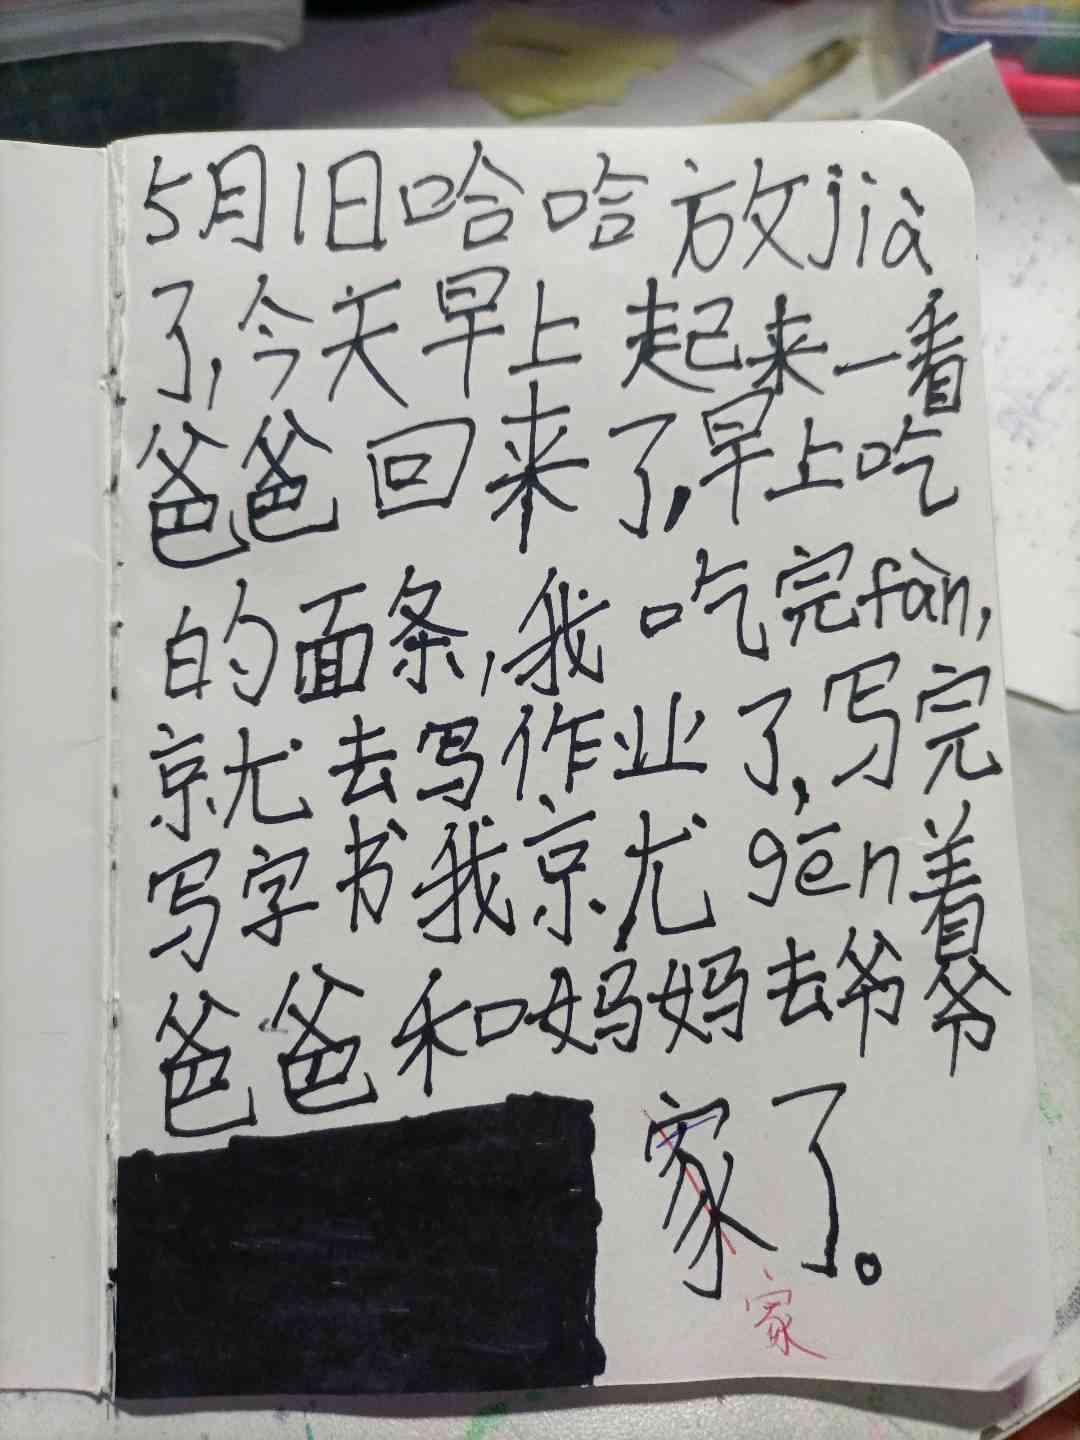 5月1日哈哈放jià
了,今天早上起来一看
爸爸回来了,早上吃
的面条,我吃完fàn,
就去写作业了,写完
写字书我就gēn着
爸爸和妈妈去爷爷
家了。
家